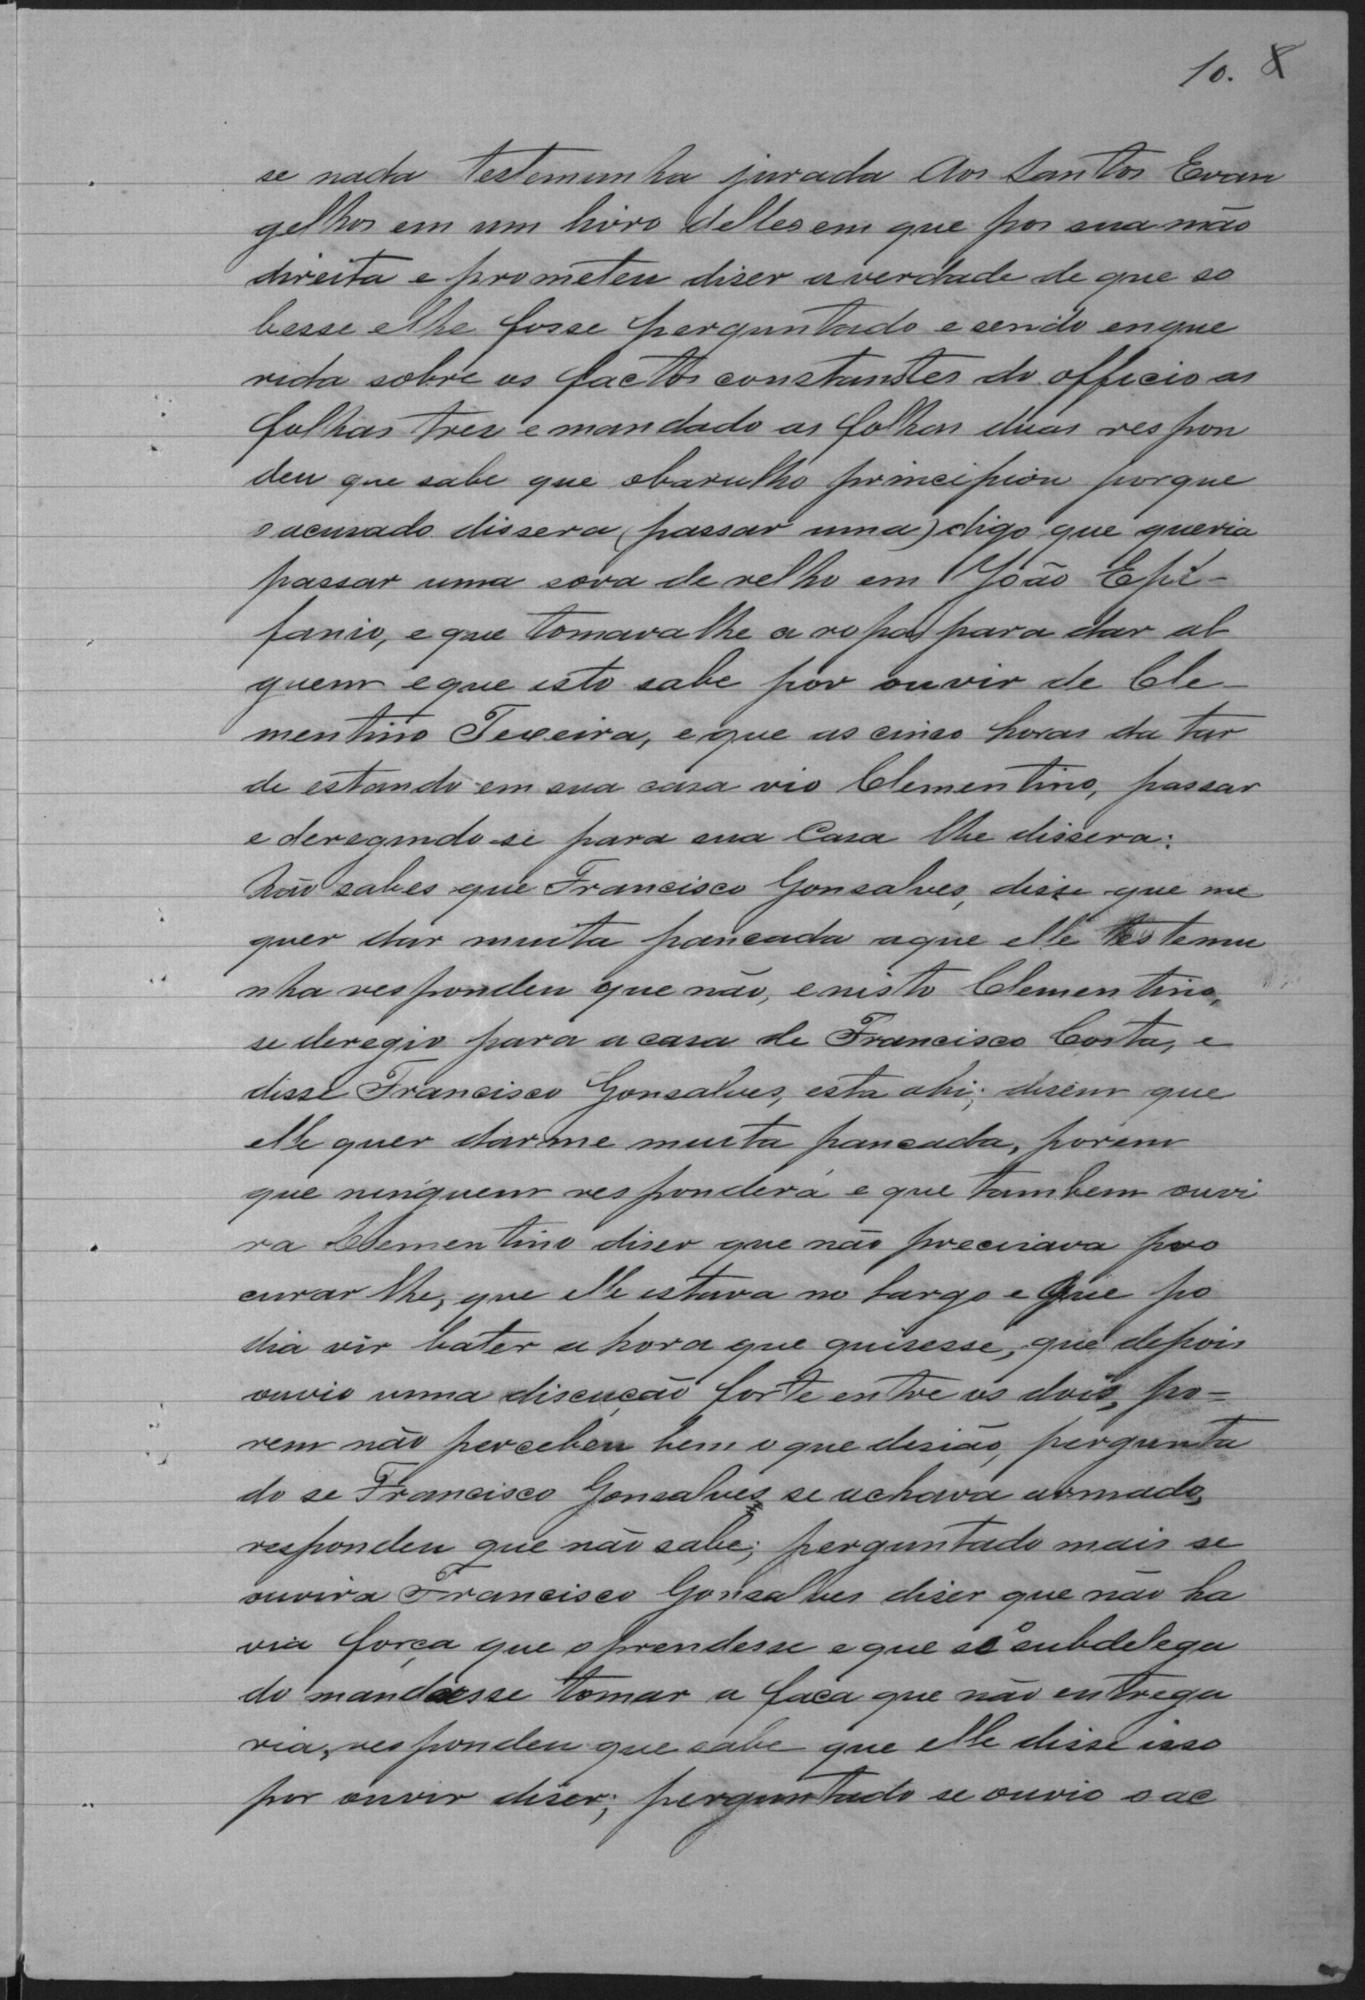 10. 8
se nada testemunha jurada Aos Santos Evan
gelhos em um livro delles em que pos sua mão
direita e prometeu diser a verdade de que so
besse e lhe fosse perguntado e sendo enque
rida sobre os factos constantes do officio as
folhas tres e mandado as folhas duas respon
deu que sabe que o barulho principiou porque
o acusado dissera (passar uma) digo que queria
passar uma sova de relho em João Epi-
fanio, e que tomava lhe a ropa para dar al
guem e que isto sabe por ouvir de Cle-
mentino Texeira, e que as cinco horas da tar
de estando em sua casa vio Clementino, passar
e deregindo-se para sua Casa lhe dissera:
Não sabes que Francisco Gonsalves, disse que me
quer dar muita pancada aque elle testemu
nha respondeu que não, e nisto Clementino,
se deregio para a casa de Francisco Costa, e
disse Francisco Gonsalves, esta ahi; disem que
elle quer dar me muita pancada, porem
que ninguem responderá e que tambem ouvi
ra Clementino diser que não precisava pro
curar lhe, que elle estava no largo e que po
dia vir bater a hora que quisesse, que depois
ouvio uma discução forte entre os dois, po=
rem não percebeu bem o que desião, pergunta
do se Francisco Gonsalves se achava armado,
respondeu que não sabe; perguntado mais se
ouvira Francisco Gonsalves diser que não ha
via força que o prendesse e que se o subdelega
do mandasse tomar a faca que não entrega
ria, respondeu que sabe que elle disse isso
por ouvir diser; perguntado se ouvio o ac